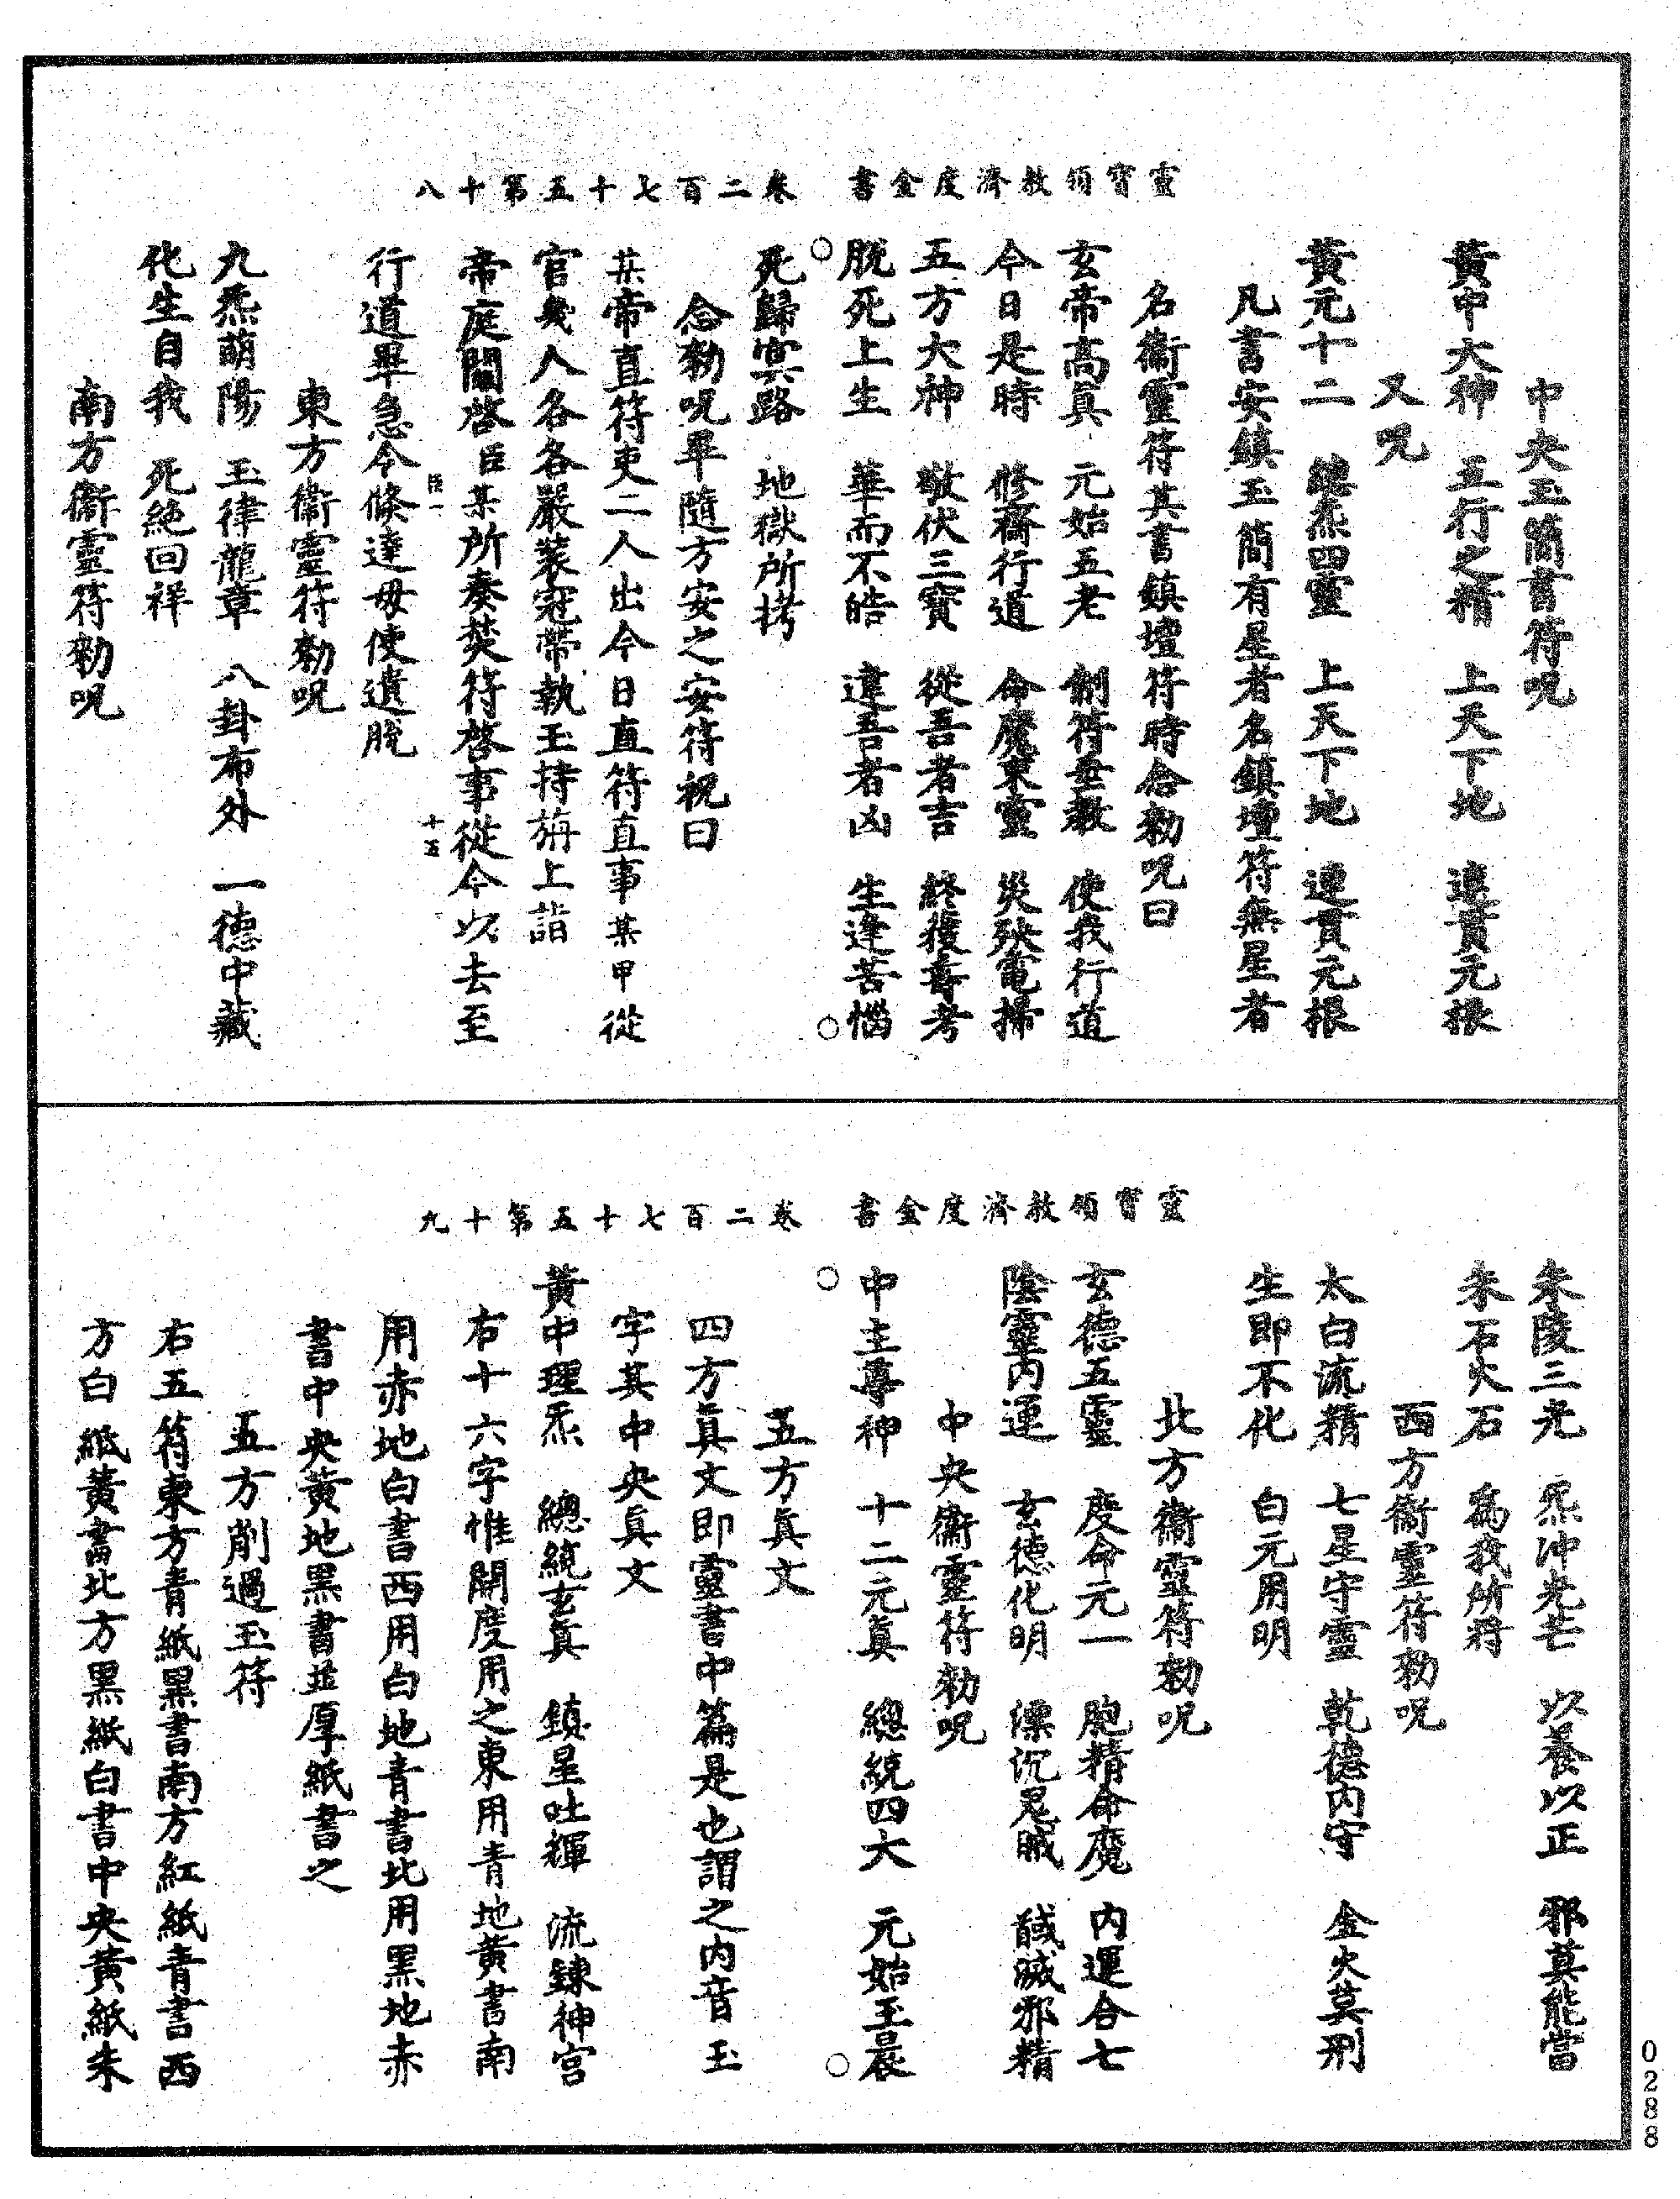 靈寶領教濟度金書　卷二百七十五第十八
中央玉簡書符呪
黃中大神　五行之精　上天下地　違貫元根
又呪
黃元十二　總炁四靈　上天下地　違貫元根
凡書安鎮玉簡有星者名鎮壇符無星者
名衞靈符其書鎮壇符時合勑呪曰
玄帝高眞　元始五老　制符垂敎　使我行道
今日是時　修齋行道　命魔束靈　災殃電掃
五方大神　敬伏三寶　從吾者吉　終獲壽考
脫死上生　華而不皓　違吾者凶　生逢苦惱
死歸寞路　地獄所拷
合勑呪畢隨方安之安符祝曰
某帝直符吏二人出今日直符直事某甲從
官幾人各各嚴裝冠帶執玉持旃上詣
帝庭關啓臣某所奏焚符啓事從今以去至
行道畢急令條達毋使遺脫
臣一　十五
東方衞靈符勑呪
九炁萌陽　玉律龍章　八卦布外　一德中藏
化生自我　死絶回祥
南方衞靈符勑呪
靈寶領教濟度金書　卷二百七十五第十九
朱陵三光　炁沖光芒　以養以正　邪莫能當
朱石火石　爲我所将
西方衞靈符勑呪
太白流精　七星守靈　乾德内守　金火莫刑
生即不化　白元用明
北方衞靈符勑呪
玄德五靈　度命元一　胞精命魔　内運合七
陰靈内運　玄德化明　漂沉鬼賊　馘滅邪精
中央衞靈符勑呪
中主尊神　十二元眞　總統四大　元始玉晨
五方眞文
四方眞文即靈書中篇是也謂之内音玉
字其中央眞文
黃中理炁　總統玄眞　鎮星吐輝　流鍊神宮
右十六字惟開度用之東用青地黃書南
用赤地白書西用白地青書北用黑地赤
書中央黃地黑書並厚紙書之
五方削過玉符
右五符東方青紙黑書南方紅紙青書西
方白紙黃書北方黑紙白書中央黃紙朱
0288